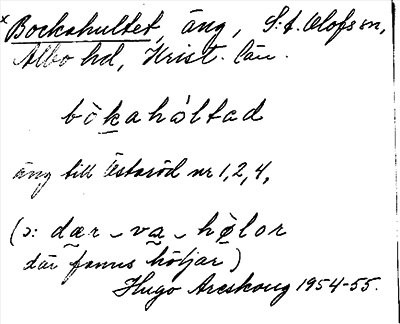 x Bockahultet, äng, S:t. Olofs sn,
Albo hd, Krist. län.
bòkahàltad
äng till Östaröd nr 1, 2, 4,
(ɔ: dær – va – hòlor
där fanns höljar)
Hugo Areskoug 1954-55.